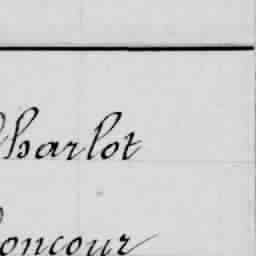 Charlot
oncour